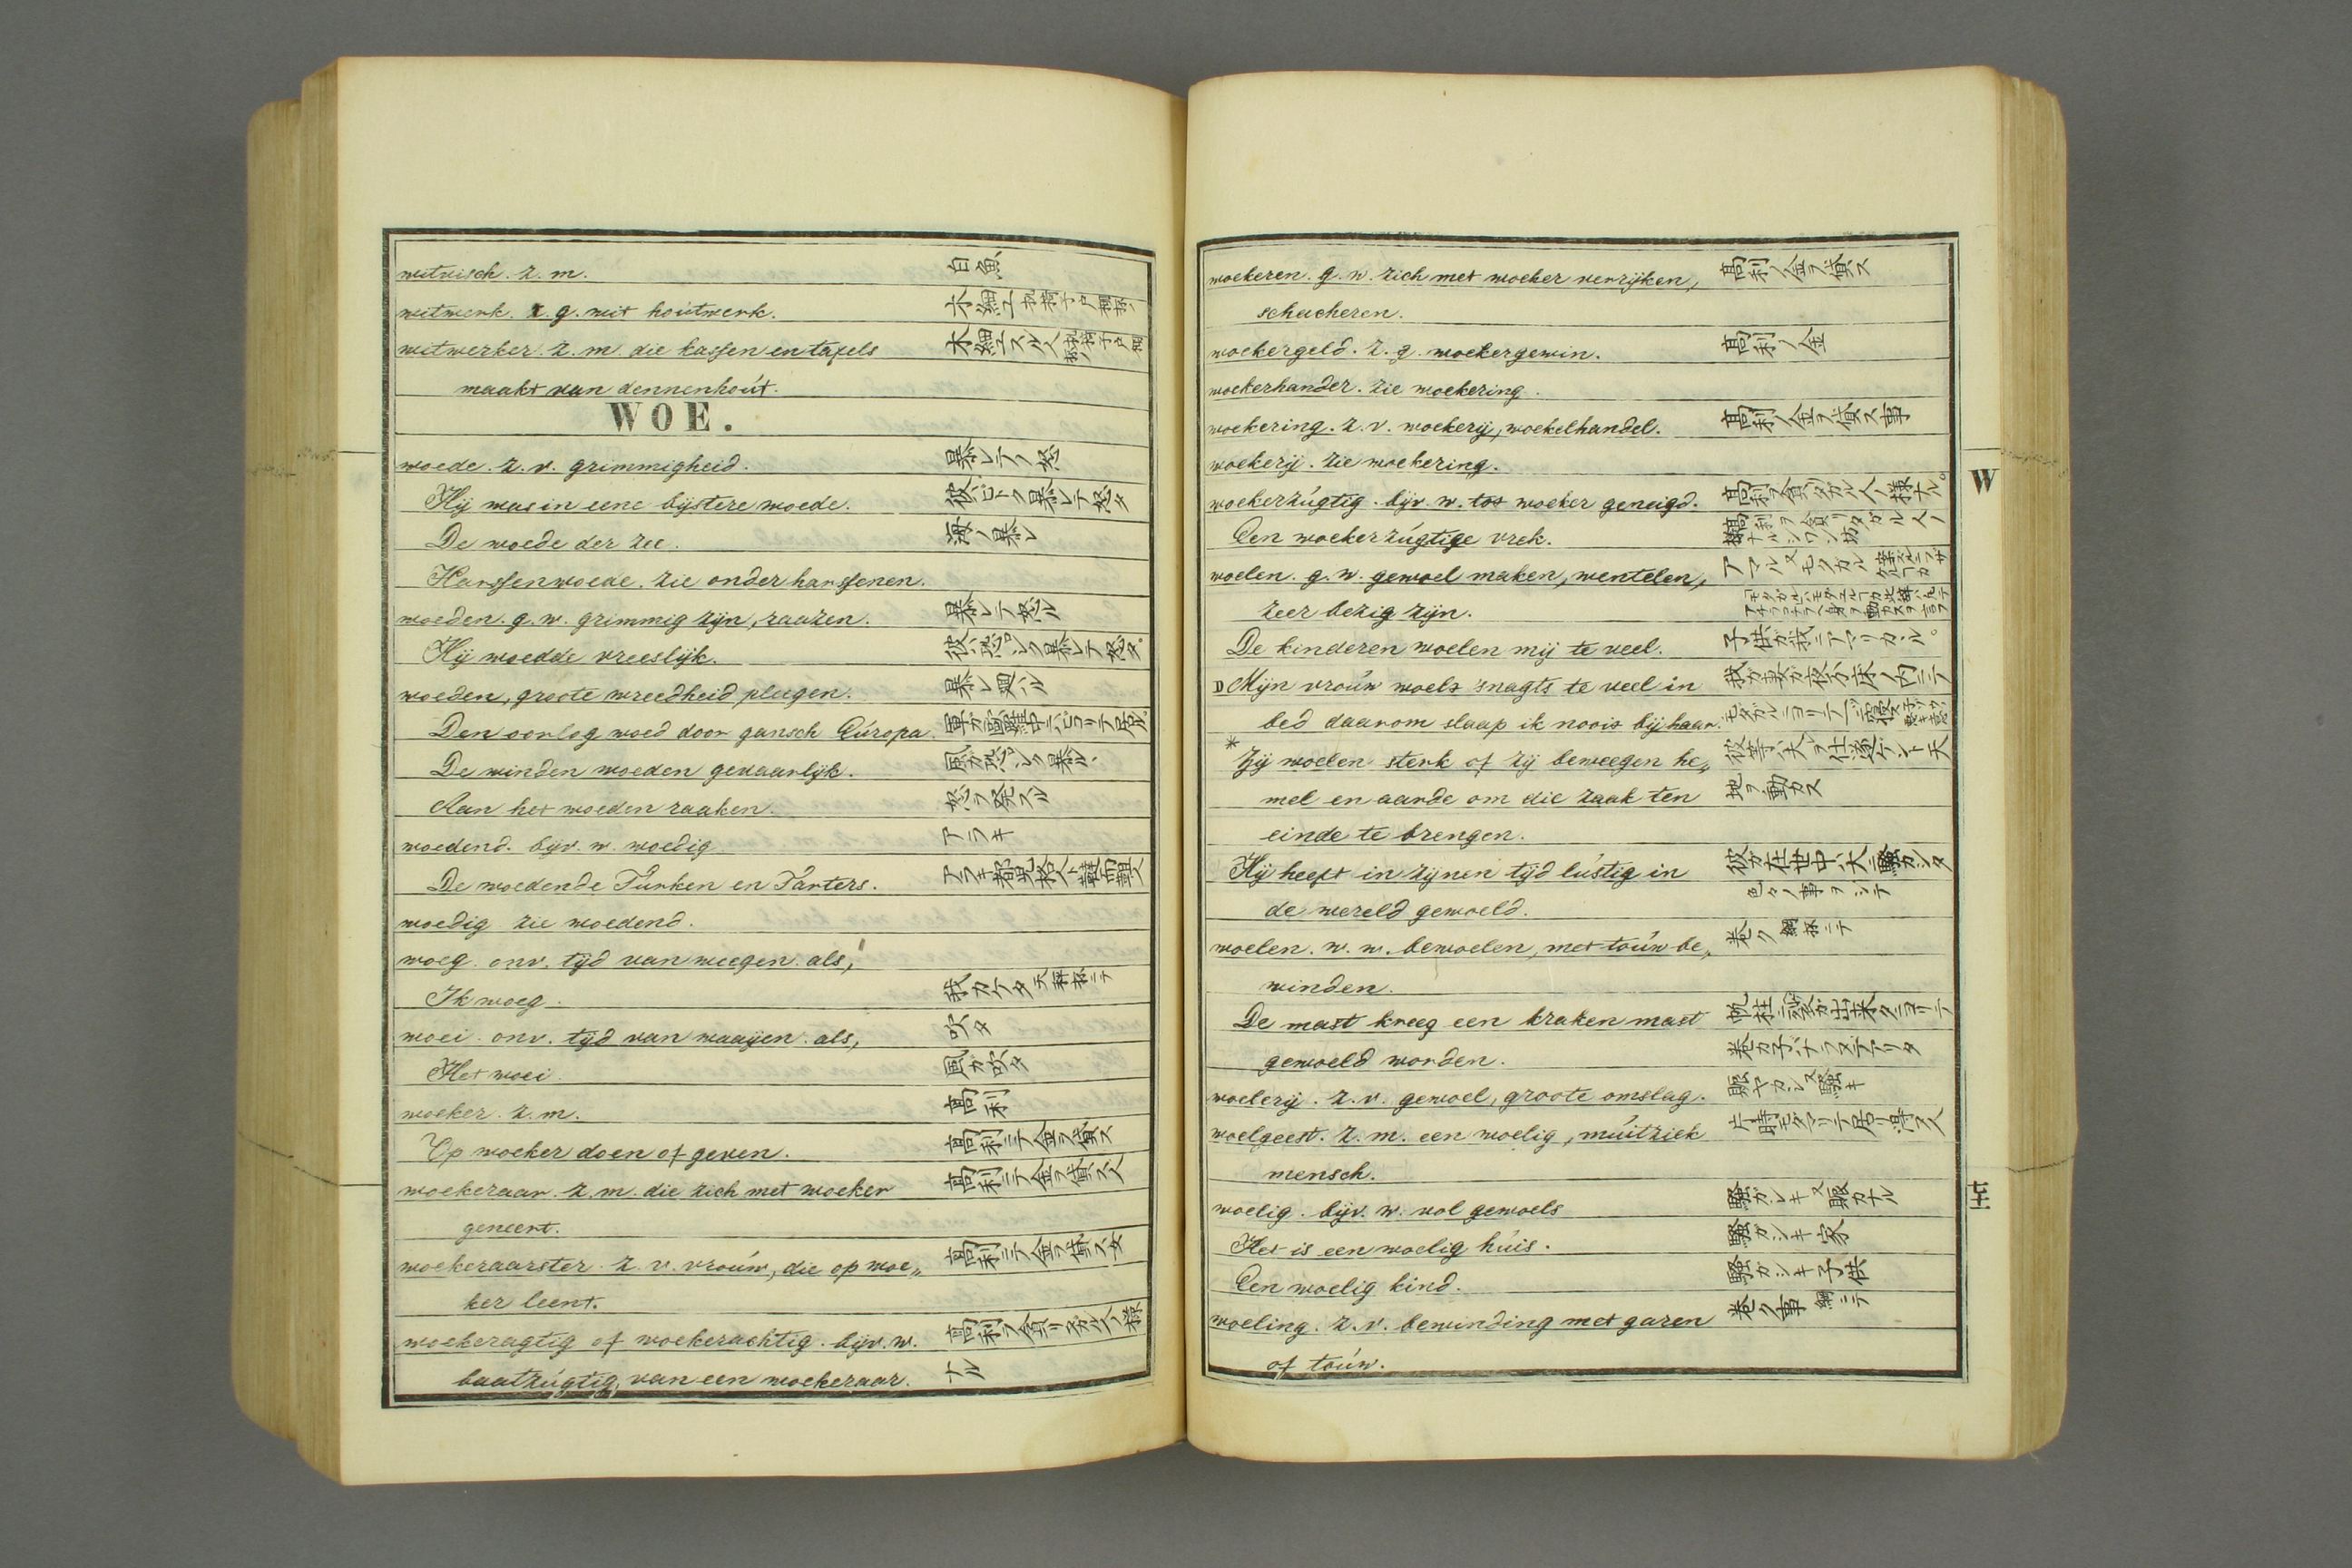 witvisch. z. m. 白魚
witwerk. z. g. wit houtwerk. 木細工
witwerker. z. m. die kassen en tafels 木細工スル人
maakt van dennenhoút.
WOE.
woede. z. v. grimmigheid. 暴レテノ怒
Hij was in eene bijstere woede. 彼ハヒドク暴レテ怒タ
De woede der zee. 海ノ暴レ
Harssenwoede. zie onder harssenen.
woeden. g. w. grimmig zijn, raazen. 暴レテ怒ル
Hij woedde vreeslijk. 彼ハ恐ロシク暴レテ怒タ。
woeden, groote wreedheid pleegen. 暴レ廻ハル
Den oorlog woed door gansch Európa.
De winden woeden gevaarlijk. 風ガ恐ロシク暴ルヽ
Aan het woeden raaken. 怒ヲ発スル
woedend. bijv. w. woedig アラキ
De woedende Túrken en Tarters.
woedig zie woedend.
woeg. onv. tijd van weegen. als,
Ik woeg. 我カケタ 天秤抔ニテ
woei. onv. tijd van waaijen. als, 吹タ
Het woei. 風ガ吹タ
woeker. z. m. 高利
Op woeker doen of geven. 高利ニテ金ヲ貸ス
woekeraar. z. m. die zich met woeker 高利ニテ金ヲ貸ス人
geneert.
woekeraarster. z. v. vroúw, die op woe„ 高利ニテ金ヲ貸ス女
ker leent.
woekeragtig of woekerachtig. bijv. w. 高利ヲ貪リタガル人ノ様
baatzúgtig, van een woekeraar. ナル
woekeren. g. w. zich met woeker verrijken, 高利ノ金ヲ貸ス
schacheren.
woekergeld. z. g. woekergewin. 高利ノ金
woekerhander. zie woekering.
woekering. z. v. woekerij, woekelhandel. 高利ノ金ヲ貸ス事
woekerij. zie woekering.
W
woekerzúgtig. bijv. w. tot woeker geneigd. 高利ヲ貪リタガル人ノ様ナル。
Een woekerzúgtige vrek. 高利ヲ貪リタガル人ノ
様ナルシワン坊
woelen. g. w. gewoel maken, wentelen,
zeer bezig zijn.
De kinderen woelen mij te veel. 子供ガ我ニアマリカヽル。
D Mijn vroúw woelt snagts te veel in 我ガ妻ガ夜分床ノ内ニテ
bed daarom slaap ik nooit bij haar.
* Zij woelen sterk of zij beweegen he„
mel en aarde om die zaak ten 地ヲ動カス
einde te brengen.
Hij heeft in zijnen tijd lústig in 彼ガ在世中ハ大ニ騒カシタ
de wereld gewoeld. 色々ノ事ヲシテ
woelen. w. w. bewoelen, met toúw be„ 巻ク 綱抔ニテ
winden.
De mast kreeg een kraken mast 帆柱ニ裂ガ出来タニヨリテ
gewoeld worden. 巻カ子バナラヌデアリタ
woelerij. z. v. gewoel, groote omslag. 賑ヤカシ又騒キ
woelgeest. z. m. een woelig, múitziek
mensch.
woelig. bijv. w. vol gewoels 騒ガシキ又賑カナル
Het is een woelig húis. 騒ガシキ家
Een woelig kind. 騒ガシキ子供
woeling. z. v. bewinding met garen 巻ク事 綱ニテ
of toúw.